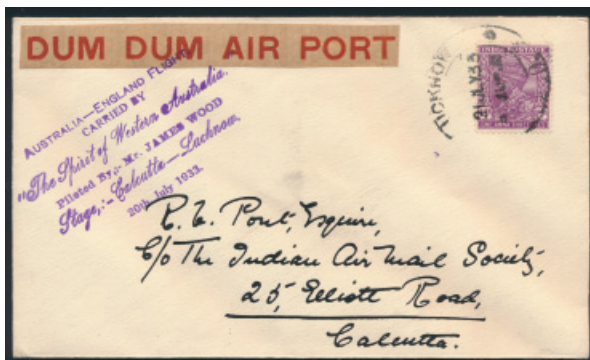 DUM DUM AIR PORT
AUSTRALIA—ENGLAND FLIGHT
CARRIED BY
"The Spirit of Western Australia."
Piloted By:- Mr. JAMES WOOD
Stage:- Calcutta—Lucknow.
20th July 1933.
LUCKNOW
INDIA POSTAGE
R. E. Pont, Esquire,
C/o The Indian Air Mail Society,
25, Elliott Road,
Calcutta.